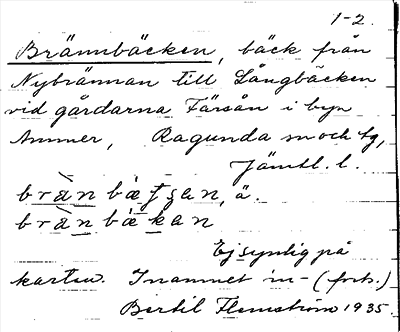 1-2.
Brännbäcken, bäck från
Nybrännan till Långbäcken
vid gårdarna Färsån i byn
Ammer, Ragunda sn och tg,
Jämtl. l.
brän bä an, ä.
brän bäkan
Ej synlig på
kartan. Inannet in- (forts.)
Bertil Flemström 1935